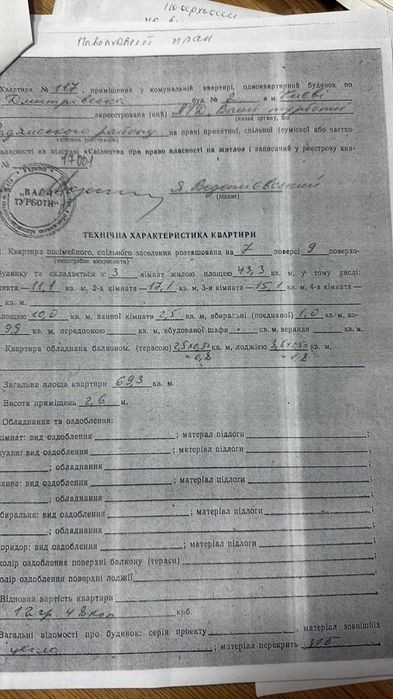 Поверховий
Поповерховий план
Квартира № 117, приміщення у комунальній квартирі, одноквартирний будинок по
Дмитрівська буд. № 2 в м. Києві
зареєстрована (ний)
(назва органу, що
району на праві приватної, спільної (сумісної або частко-
власності на підставі «Свідоцтва про право власності на житло» і записаний у реєстрову кни-
№ 17001
"ВАШІ
ТУРБОТИ"
(підпис)
ТЕХНІЧНА ХАРАКТЕРИСТИКА КВАРТИРИ
1. Квартира посімейного, спільного заселення розташована на 7 поверсі 9 поверхо-
(непотрібне викреслити)
будинку та складається з: 3 кімнат жилою площею 43,3 кв. м, у тому числі:
ната — 11,1 кв. м, 2-а кімната — 17,1 кв. м, 3-я кімната — 15,1 4-а кімната —
кв. м.
площею 10,0 кв. м, ванної кімнати 2,5 кв. м, вбиральні (поєднаної) 1,0 кв. м, ко-
9,9 кв. м, передпокою кв. м, вбудованої шафи кв. м, веранди кв. м.
Квартира обладнана балконом, (терасою) кв. м, лоджією кв. м,
= 0,8 = 1,8
Загальна площа квартири 69,3 кв. м.
Висота приміщень 2,6 м.
Обладнання та оздоблення:
кімнат: вид оздоблення ; матеріал підлоги ;
кухня: вид оздоблення ; матеріал підлоги
; обладнання
ванна: вид оздоблення ; матеріал підлоги
; обладнання
вбиральня: вид оздоблення ; матеріал підлоги ;
; обладнання
коридор: вид оздоблення ; матеріал підлоги ;
колір оздоблення поверхні балкону (тераси) ;
колір оздоблення поверхні лоджії
Відновна вартість квартири
крб.
Загальні відомості про будинок: серія проекту , матеріал зовнішніх
цегла ; матеріал перекрить з/б